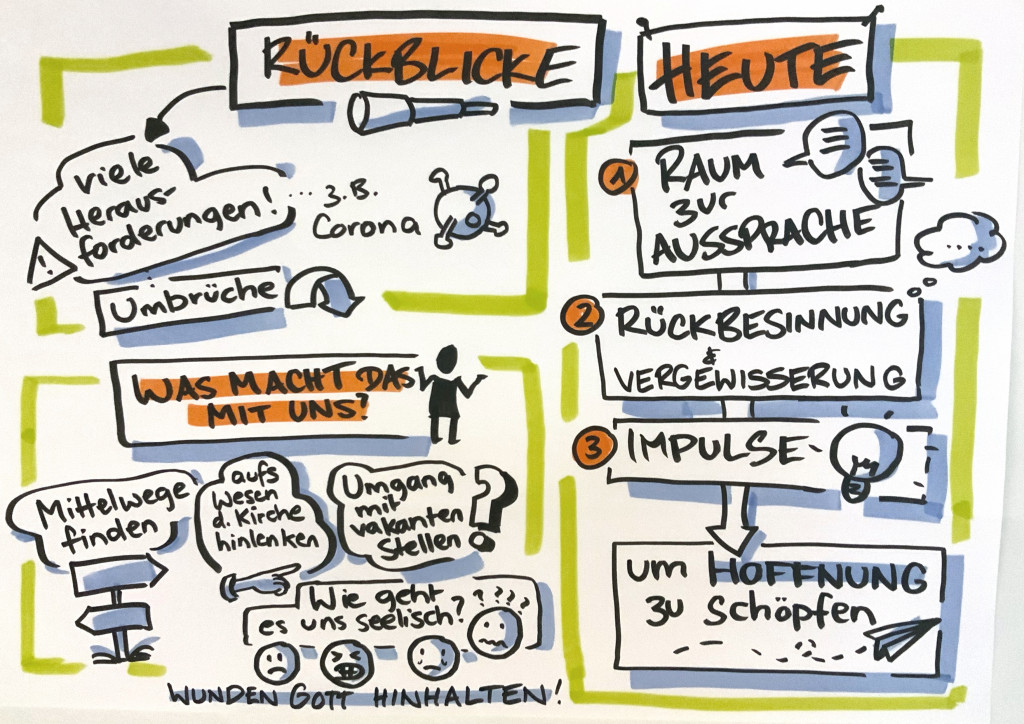 RÜCKBLICKE
viele
Heraus-
forderungen!
... z.B.
Corona
!
Umbrüche
WAS MACHT DAS
MIT UNS?
Mittelwege
finden
aufs
Wesen
d. Kirche
hinlenken
Umgang
mit
vakanten
Stellen
?
Wie geht
es uns seelisch? ????
WUNDEN GOTT HINHALTEN!
HEUTE
1
RAUM
zur
AUSSPRACHE
....
2
RÜCKBESINNUNG
&
VERGEWISSERUNG
3
IMPULSE-
um HOFFNUNG
zu schöpfen